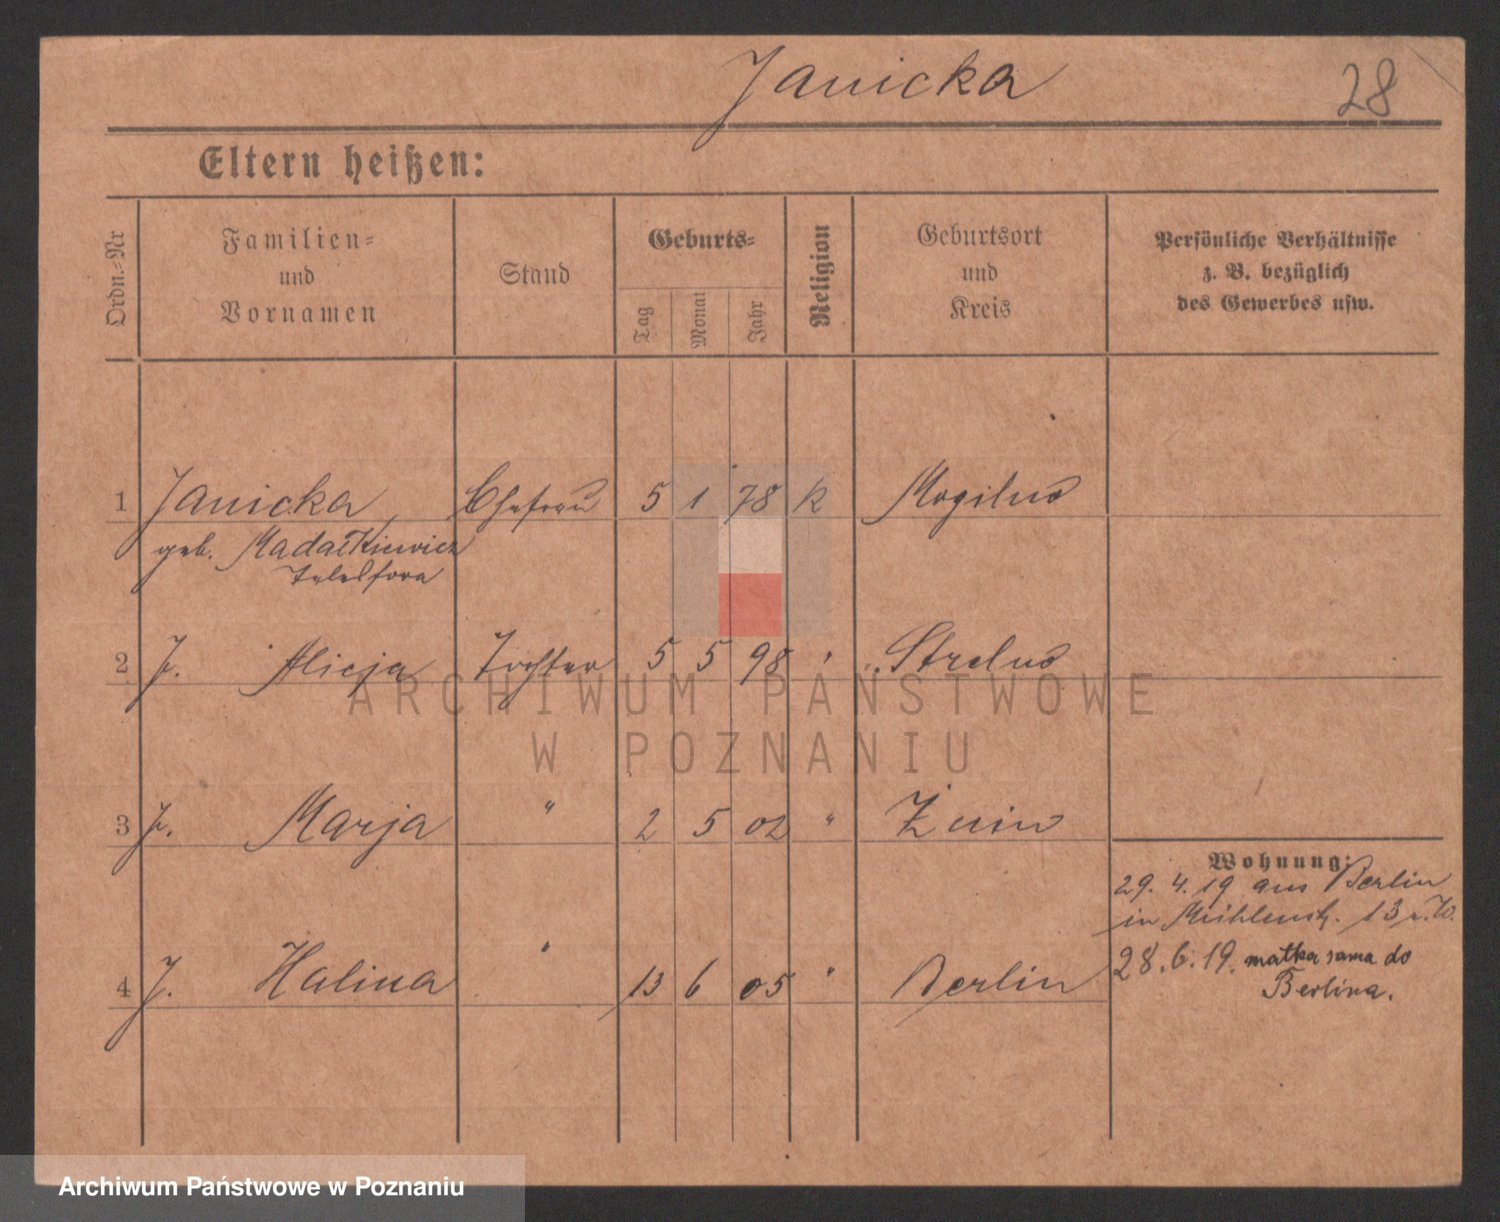 Janicka 28
Eltern heißen:
Ordn.-Nr
Familien-
und
Vornamen
Stand
Geburts-
Tag
Monat
Jahr
Religion
Geburtsort
und
Kreis
Persönliche Verhältnisse
z. B. bezüglich
des Gewerbes usw.
1 Janicka, Ehefrau 5 1 78 k Mogilno
geb. Madalkiewicz
Telesfora
2 J. Alicja Tochter 5 5 98 " Strelno
ARCHIWUM PAŃSTWOWE
W POZNANIU
3 J. Marja " 2 5 02 " Żnin
Wohnung:
29. 4. 19 aus Berlin
in Mühlenstr. 13 b. W.
4 J. Halina " 13 6 05 " Berlin
28. 6. 19. matka sama do
Berlina.
Archiwum Państwowe w Poznaniu